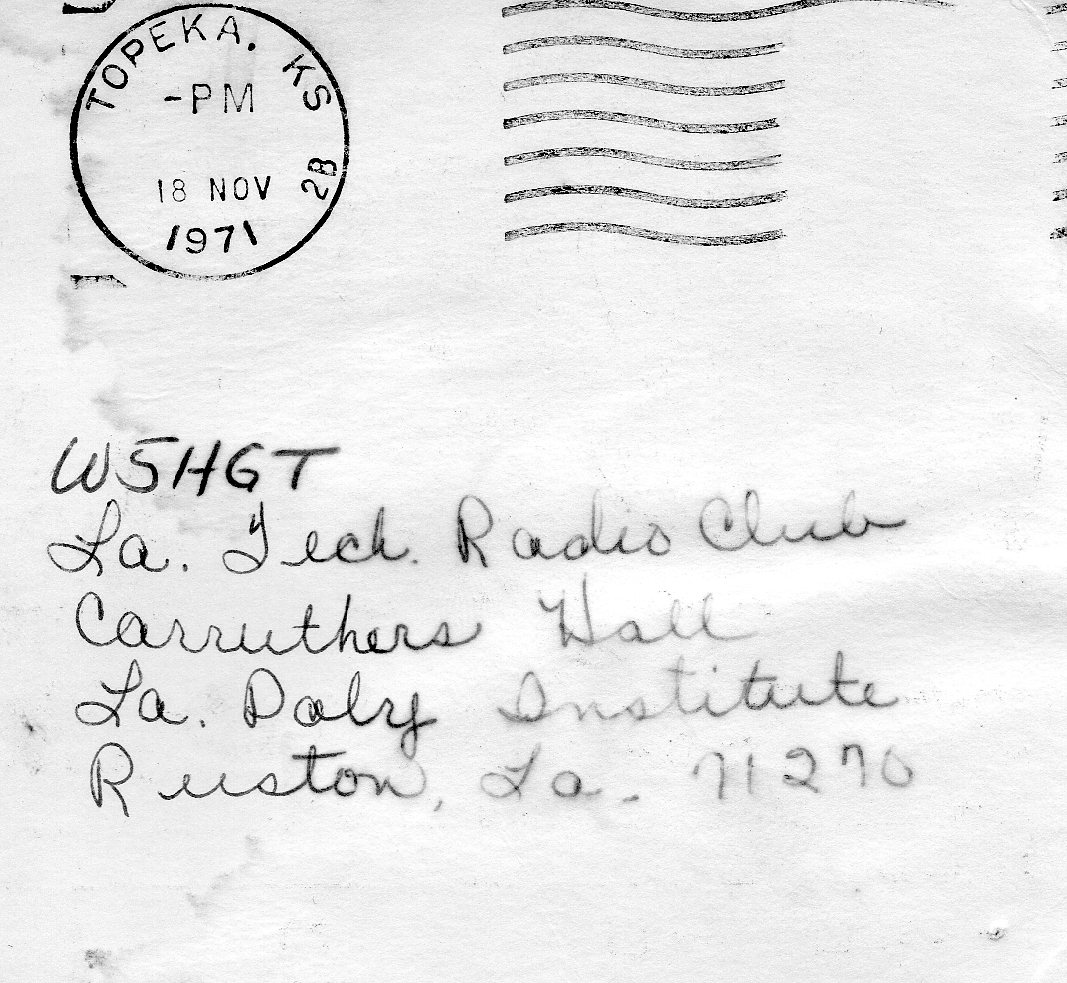 TOPEKA. KS
-PM
2B
18 NOV
1971
W5HGT
La. Tech. Radio Club
Carruthers Hall
La. Poly Institute
Ruston, La. 71270